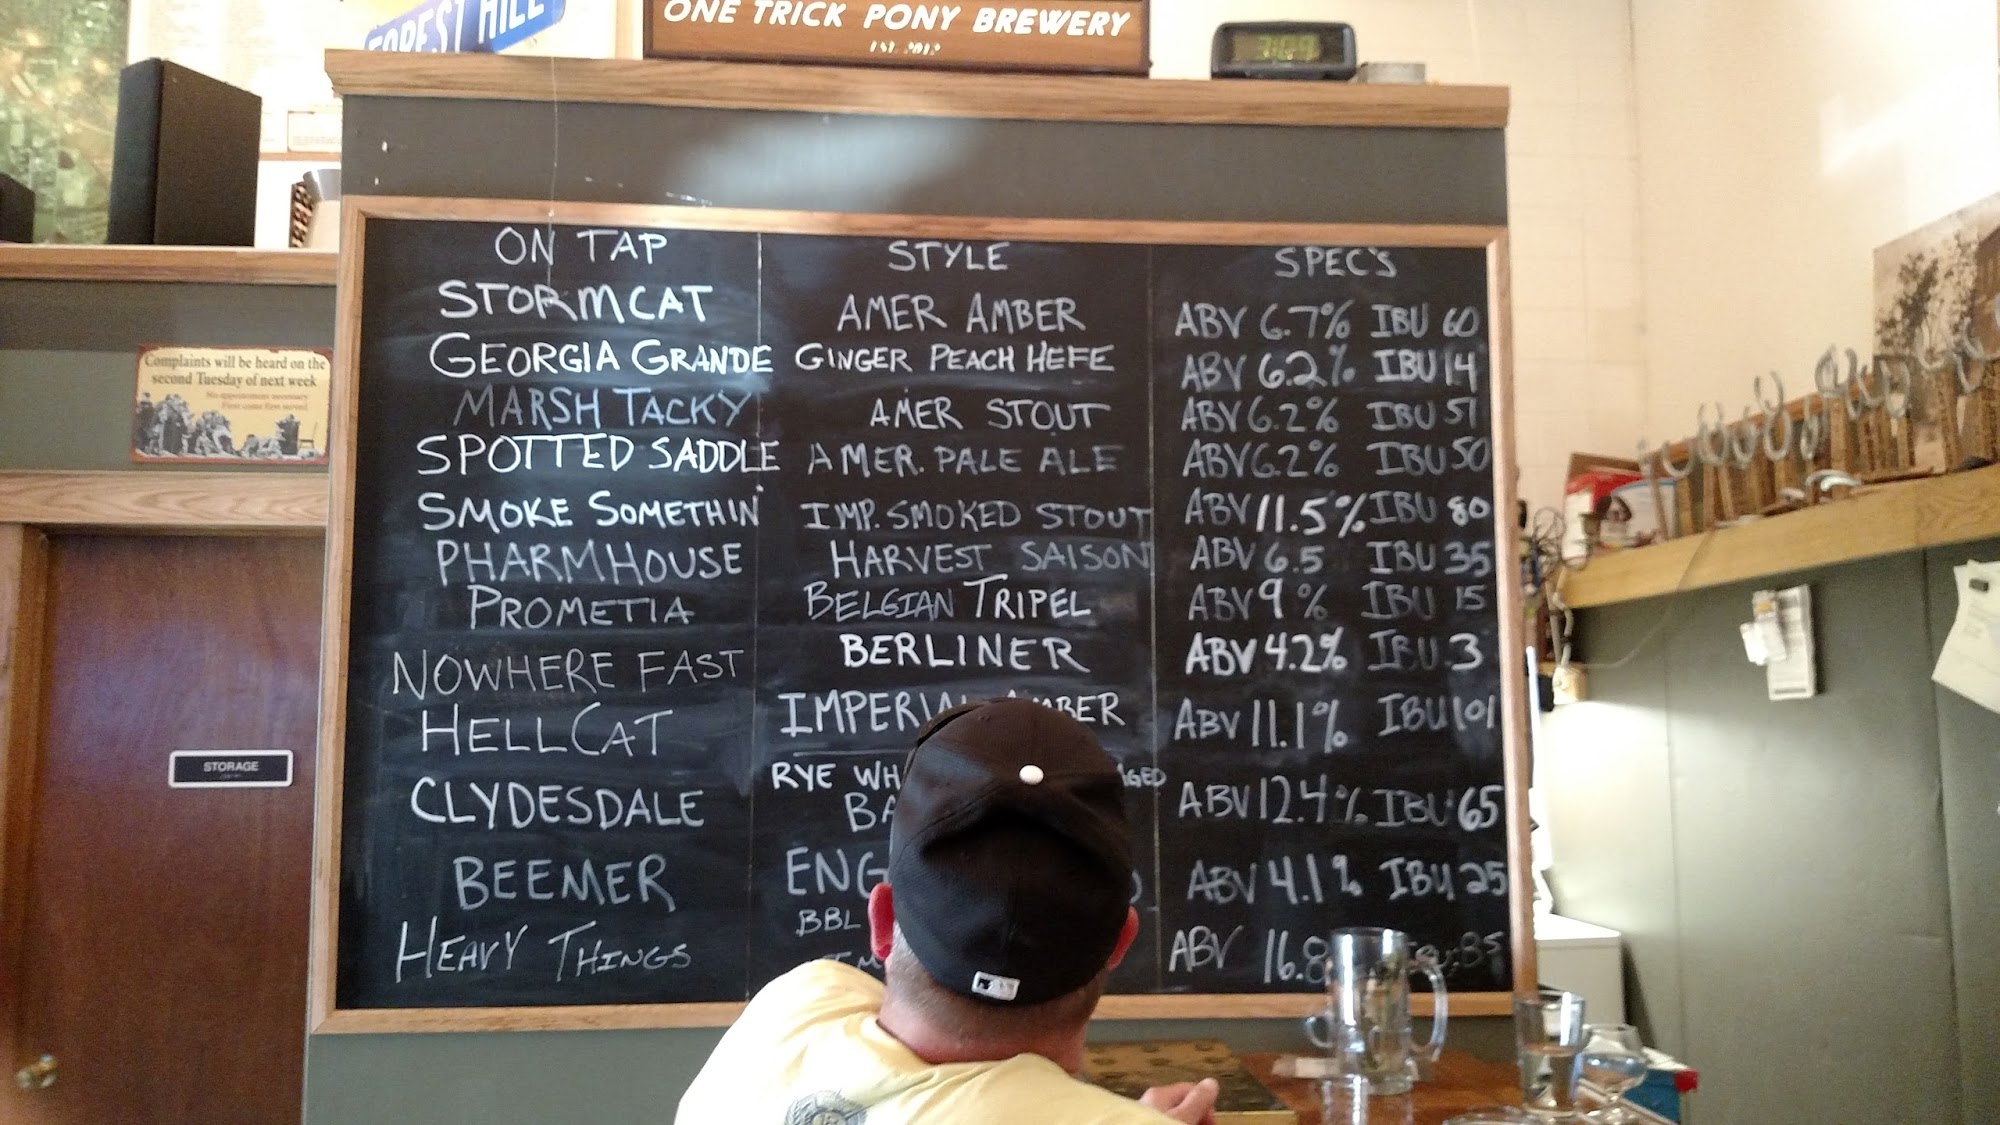 FOREST HILL
ONE TRICK PONY BREWERY
EST. 2012
Complaints will be heard on the
second Tuesday of next week
No appointment necessary
First come first served
STORAGE
ON TAP STYLE SPEC'S
STORMCAT AMER AMBER ABV 6.7% IBU 60
GEORGIA GRANDE GINGER PEACH HEFE ABV 6.2% IBU 14
MARSH TACKY AMER STOUT ABV 6.2% IBU 51
SPOTTED SADDLE AMER. PALE ALE ABV 6.2% IBU 50
SMOKE SOMETHIN IMP. SMOKED STOUT ABV 11.5% IBU 80
PHARMHOUSE HARVEST SAISON ABV 6.5 IBU 35
PROMETIA BELGIAN TRIPEL ABV 9% IBU 15
NOWHERE FAST BERLINER ABV 4.2% IBU 3
HELLCAT IMPERIAL AMBER ABV 11.1% IBU 101
CLYDESDALE RYE ABV 12.4% IBU 65
BEEMER ENG ABV 4.1% IBU 25
BBL
HEAVY THINGS ABV 16.8 IBU 85